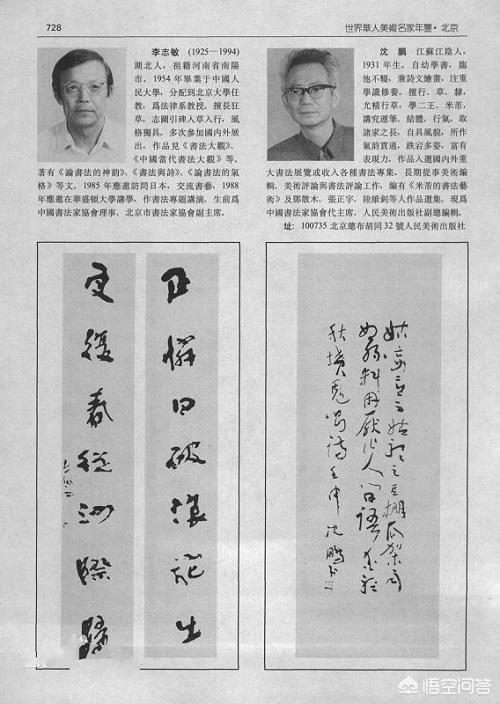 728
世界華人美術名家年鑒·北京
李志敏 (1925—1994)
湖北人，祖籍河南省南陽
市。1954年畢業于中國人
民大學，分配到北京大學任
教，爲法律系教授。擅長狂
草，志圖引碑入草入行，風
格獨具，多次參加國内外展
出，作品見《書法大觀》、
《中國當代書法大觀》等。
著有《論書法的神韵》、《書法與詩》、《論書法的氣
格》等文。1985年應邀訪問日本，交流書藝，1988
年應邀在華盛頓大學講學，作書法專題講演。生前爲
中國書法家協會理事、北京市書法家協會副主席。
沈 鵬 江蘇江陰人，
1931年生。自幼學書，臨
池不輟，兼詩文繪畫，注重
學識修養。擅行、草、隸，
尤精行草，學二王、米芾，
講究運筆、結體、行氣，取
諸家之長，自具風貌，所作
氣韵貫通，跌宕多姿，富有
表現力。作品入選國内外重
大書法展覽或收入各種書法專集。長期從事美術編
輯、美術評論與書法評論工作，編有《米芾的書法藝
術》及鄧散木、張正宇、陸維釗等人作品選集。現爲
中國書法家協會代主席、人民美術出版社副總編輯。
址：100735北京總布胡同32號人民美術出版社
正憐日破浪花出
更復春從沙際歸
姑妄言之姑聽之豆棚瓜架雨
如絲料應厭作人間語愛聽
秋墳鬼唱詩壬申沈鵬書
悟空问答